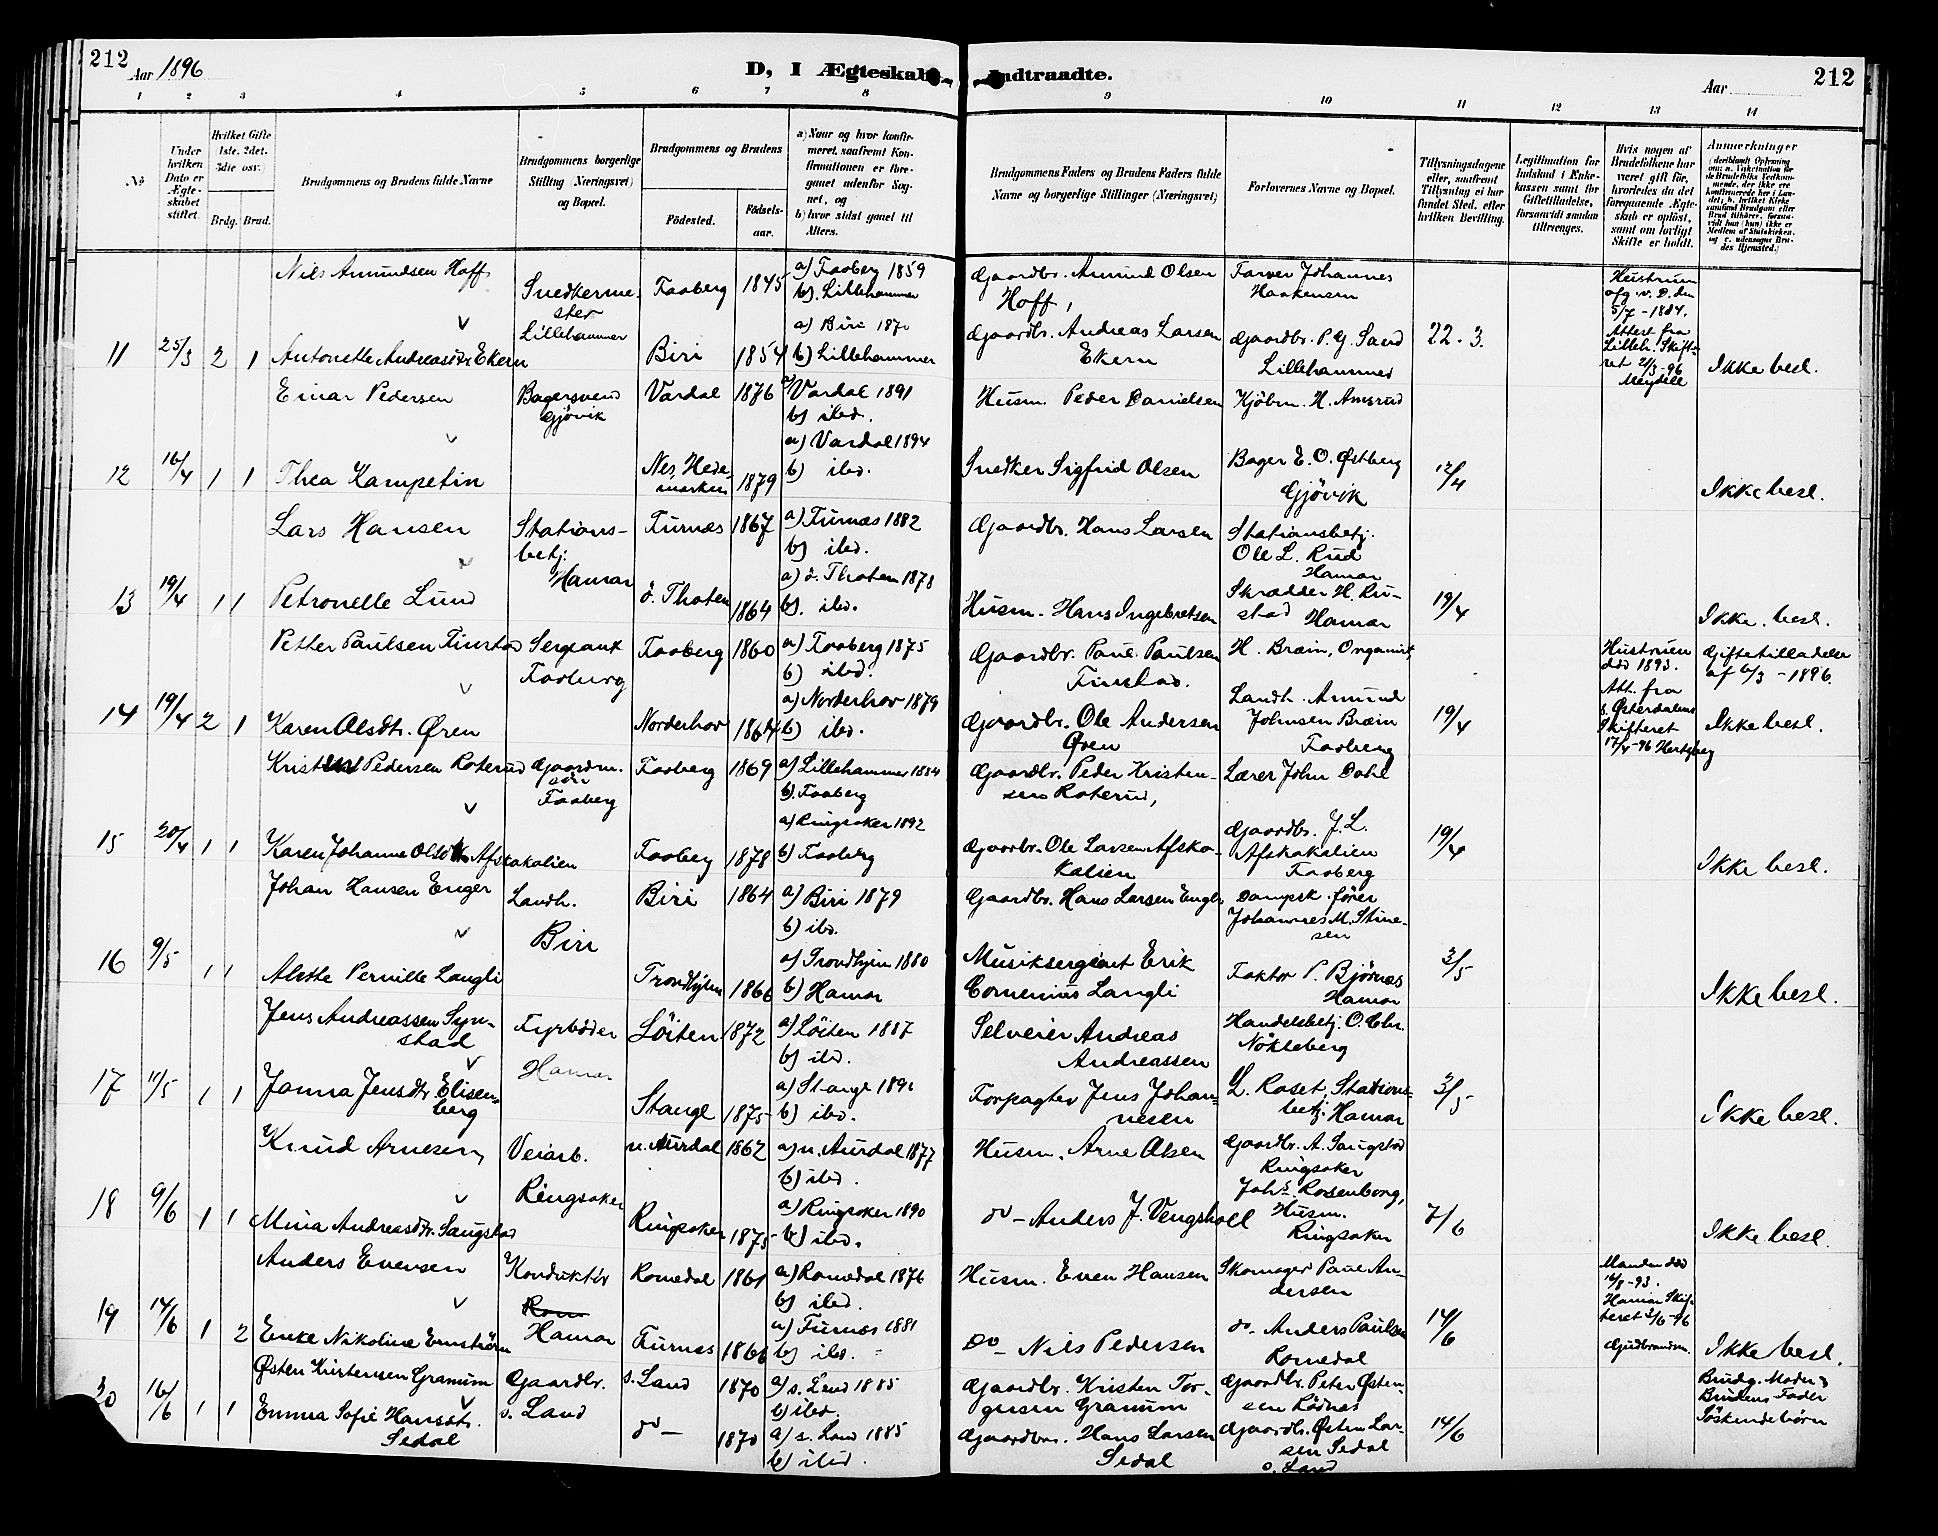 212
Aar 1896
D, I Ægteskab Indtraadte.
Aar
212
1 2 3 4 5 6 7 8 9 10 11 12 13 14
No
Under hvilken Dato er Ægteskabet stiftet.
Hvilket Gifte 1ste. 2det. 3die osv.
Brdg. Brud.
Brudgommens og Brudens fulde Navne
Brudgommens borgerlige Stilling (Næringsvei) og Bopæl.
Brudgommens og Brudens
Födested.
Födselsaar.
a) Naar og hvor konfirmeret, saafremt Konfirmationen er foreganet udenfor Sognet, og
b) hvor sidst gaaet til Alters.
Brudgommens Faders og Brudens Faders fulde Navne og borgerlige Stillinger (Næringsvei)
Forlovernes Navne og Bopæl.
Tillysningsdagene eller, saafremt Tillysning ei har fundet Sted, efter hvilken Bevilling.
Legitimation for Indskud i Enkekassen samt for Giftetilladelse, forsaavidt saadan tiltrænges.
Hvis nogen af Brudefolkene har været gift för, hvorledes da det foregaaende Ægteskab er oplöst, samt om lovligt Skifte er holdt.
Anmærkninger
11 25/3 2 1
Nils Amundsen Hoff
Snedkermester Lillehammer
Faaberg 1845
a) Faaberg 1859
b). Lillehammer
Gaardbr. Amund Olsen Hoff,
Farver Johannes Haakensen
22. 3.
Hustruen afg. v. D. den 5/7 - 1884. Attest fra Lilleh. Skifteret 21/3-96 Meydell
Antonette Andreasdtr Ekern
Biri 1854
a) Biri 1870
b) Lillehammer
Gaardbr. Andreas Larsen Ekern
Gaardbr. P. G. Sand Lillehammer
Ikke besl.
12 16/4 1 1
Einar Pedersen
Bagersvend Gjövik
Vardal 1876
a) Vardal 1891
b) ibd.
Husm. Peder Danielsen
Kjöbm. H. Amsrud
Thea Kampetin
Nes, Hedemarken 1879
a) Vardal 1894
b) ibd.
Snedker Sigfrid Olsen
Bager E. O. Østberg Gjövik
12/4
Ikke besl.
13 19/4 1 1
Lars Hansen
Stationsbetj. Hamar
Furnæs 1867
a) Furnæs 1882
b) ibd.
Gaardbr. Hans Larsen
Stationsbetj. Ole L. Rud Hamar
Petronelle Lund
ö. Thoten 1864
a) ö. Thoten 1878
b). ibd.
Husm. Hans Ingebretsen
Skrædder H. Rustad Hamar
19/4
Ikke. besl.
14 19/4 2 1
Petter Paulsen Finstad
Sergeant Faaberg
Faaberg 1860
a) Faaberg 1875
b) ibd.
Gaardbr. Paul Paulsen Finstad.
H. Bræin, Organist,
Hustruen död 1893. Att. fra s. Østerdalens Skifteret 17/4-96 Hertzberg
Giftetilladelse af 6/3 - 1896.
Karen Olsdtr. Øren
Norderhov 1864
a) Norderhov 1879
b) ibd.
Gaardbr. Ole Andersen Øren
Landh. Amund Johnsen Bræin Faaberg
19/4
Ikke besl.
15 20/4 1 1
Pedersen Roterud
Gaardm. sön Faaberg
Faaberg 1869
a) Lillehammer 1884
b). Faaberg
Gaardbr. Peder Kristensen Roterud,
Lærer John Dahl
Karen Johanne Olsdtr Afskakalien
Faaberg 1878
a) Ringsaker 1892
b) Faaberg
Gaardbr. Ole Larsen Afskakalien
Gaardbr. J. L. Afskakalien Faaberg
19/4
Ikke besl.
16 9/5 1 1
Johan Hansen Enger
Landh. Biri
Biri 1864
a) Biri 1879
b) ibd.
Gaardbr. Hans Larsen Enger
Dampsk. förer Johannes M. Stinesen
Pernille Langli
Trondhjem 1866
a) Trondhjem 1880
b) Hamar
Musiksergeant Erik Cornenius Langli
Faktor P. Björnæs Hamar
3/5
Ikke besl.
17 11/5 1 1
Jens Andreassen Synstad
Fyrböder Hamar
Löiten 1872
a) Löiten 1887
b) ibd.
Selveier Andreas Andreassen
Handelsbetj. O. Chr. Nökleberg
Janna Jensdtr. Elisenberg
Stange 1875
a) Stange 1891
b) ibd.
Forpagter Jens Johannesen
L. Roset, Stationsbetj. Hamar
3/5
Ikke besl.
18 9/6 1 1
Knud Arnesen
Veiarb. Ringsaker
n. Aurdal 1862
a) n. Aurdal 1877
b) ibd.
Husm. Arne Olsen
Gaardbr. A. Saugstad Ringsaker
Mina Andreasdtr. Saugstad
Ringsaker 1875
a) Ringsaker 1890
b) ibd.
do - Anders J. Vengsholl
Johs. Rosenborg, Husm. Ringsaker
7/6
Ikke besl.
19 14/6 1 2
Anders Evensen
Konduktör Hamar
Romedal 1861
a) Romedal 1876
b) ibd.
Husm. Even Hansen
Skomager Paul Andersen
Manden död 16/8-93. Hamar Skifteret 3/6-96 Gudbrandsen.
Enke Nikoline Ernström
Furnæs 1866
a) Furnæs 1881
b) ibd.
do - Nils Pedersen
do. Anders Paulsen Romedal
14/6
Ikke besl.
20 16/6 1 1
Østen Kristensen Granum
Gaardbr. s. Land
s. Land 1870
a) s. Land 1885
b) ibd.
Gaardbr. Kristen Torgersen Granum
Gaardbr. Peter Østensen Rödnæs
Brudg. Moder & Brudens Fader Söskendebörn
Emma Sofie Hansdtr. Sedal
do - 1870
a) s. Land 1885
b) ibid.
Gaardbr. Hans Larsen Sedal
Gaardbr. Østen Larsen Sedal s. Land
14/6